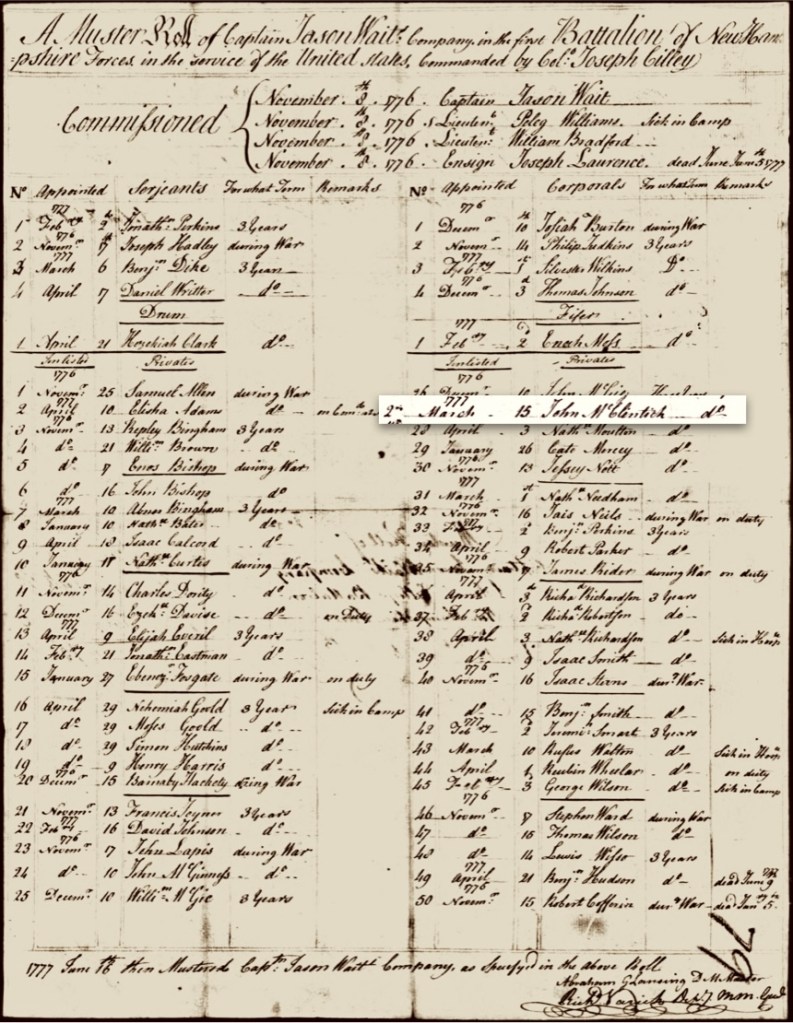 A Muster Roll of Captain Jason Wait's Company, in the first Battalion of New Ham=
=pshire Forces, in the service of the United States, Commanded by Col.o Joseph Cilley
Commissioned
November 8th 1776 Captain Jason Wait
November 8th 1776 1 Lieutent Peleg Williams Sick in Camp
November 8th 1776 2 Lieutent William Bradford
November 8th 1776 Ensign Joseph Laurence dead June 5th 1777
No Appointed Serjeants For what Term Remarks
1777
1 Feby 2d Jonathn Perkins 3 Years
1776
2 Novemr 7th Joseph Hadley during War
1777
3 March 6 Benjn Dike 3 Years
4 April 17 Daniel Writter do
Drum
1 April 21 Hezekiah Clark do
Inlisted Privates
1776
1 Novemr 25 Samuel Allen during War
1777
2 April 10 Elisha Adams do
1776
3 Novemr 13 Kepley Bringham 3 Years
4 do 21 Willm Brown do
5 do 7 Enos Bishop during War
6 do 16 John Bishop do
1777
7 March 10 Abner Bingham 3 Years
8 January 10 Nathl Bates do
9 April 18 Isaac Calcord do
10 January 18 Nathl Curtis during War
1776
11 Novemr 14 Charles Dority do
12 Decemr 16 Ezekl Davise do on Duty
1777
13 April 9 Elijah Everil 3 Years
14 Feby 21 Jonathn Eastman do
15 January 27 Ebenezr Fosgate during War on duty
16 April 29 Nehemiah Goold 3 Year Sick in Camp
17 do 29 Moses Goold do
18 do 29 Simon Hutchins do
19 do 9 Henry Harris do
1776
20 Decemr 15 Barnaby Hackety during War
21 Novemr 13 Francis Joyner 3 Years
1777
22 Feby 16 David Johnson do
1776
23 Novemr 17 John Lapis during War
24 do 10 John McGinness do
25 Decemr 10 Willm McGee 3 Years
No Appointed Corporals For what Term Remarks
1776
1 Decemr 10 Josiah Burton during War
2 Novemr 14 Philip Judkins 3 Years
1777
3 Feby 1st Silvester Wilkins Do
1776
4 Decemr 3d Thomas Johnson do
Fifer
1777
1 Feby 2 Enoch Moss do
Inlisted Privates
1776
26 Decemr 10
1777
March 15 John McClentick do
28 April 3 Nathl Moulton do
29 January 26 Cato Mercey do
1776
30 Novemr 13 Jessey Nott do
1777
31 March 1st Nathn Needham do
1776
32 Novemr 16 Jais Neils during War on duty
1777
33 Feby 2 Benjn Perkins 3 Years
34 April 9 Robert Parker do
1776
35 Novemr 7 James Rider during War on duty
1777
April 3 Richd Richardson 3 Years
37 Feby 2 Richd Robertson do
38 April 3 Nathn Richardson do
39 do 9 Isaac Smith do
1776
40 Novemr 16 Isaac Stevens durg War
41 do 15 Benjn Smith do
1777
42 Feby 2 Jeremh Smart 3 Years
43 March 10 Rufus Walton do
44 April 1 Reubin Wheelar do on duty
45 Feby 3 George Wilson do Sick in Camp
1776
46 Novemr 8 Stephen Ward during War
47 do 15 Thomas Wilson do
48 do 14 Lewis Wiser 3 Years
1777
49 April 21 Benjn Hudson do
1776
50 Novemr 15 Robert Cofferin durg War
1777 June 16th then Mustered Captn Jason Wait's Company, as specify'd in the above Roll
Abraham G Lansing D M Master
Richd Varick
79